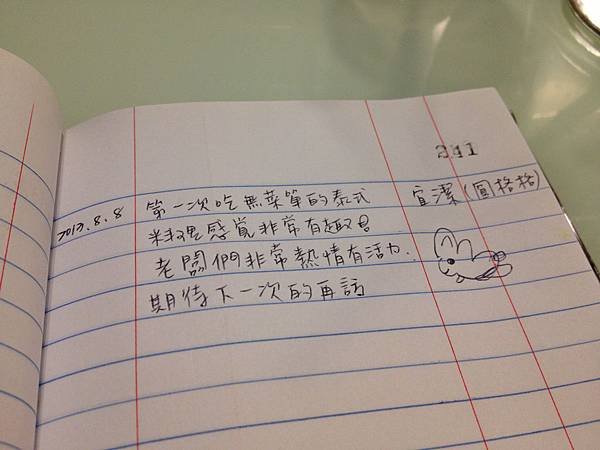 241
2013.8.8 第一次吃無菜單的泰式 宜潔(圓格格)
料理感覺非常有趣
老闆們非常熱情有活力.
期待下一次的再訪